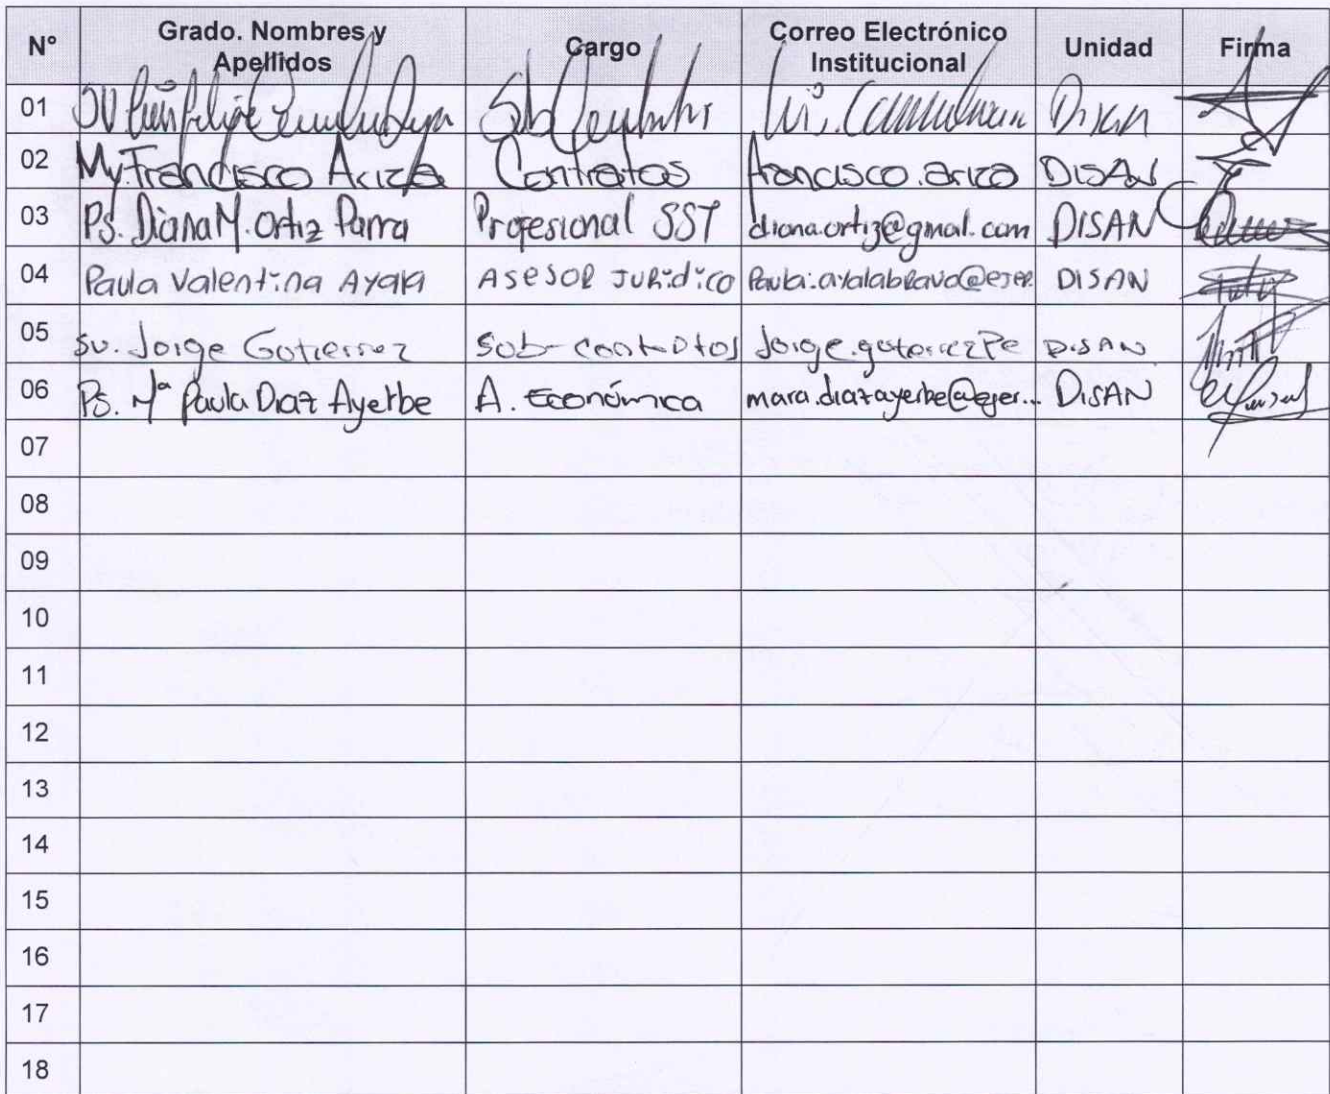 N° Grado. Nombres y Apellidos Cargo Correo Electrónico Institucional Unidad Firma
01 SV Luis Felipe Disan
02 My. Francisco Ariza Contratos francisco.ariza DISAN
03 Ps. Diana M. Ortiz Parra Profesional SST diana.ortiz@gmail.com DISAN
04 Paula Valentina Ayala Asesor Jurídico DISAN
05 SV. Jorge Gutierrez Sub-contratos DISAN
06 Ps. Mª Paula Diaz Ayerbe A. Económica mara.diazayerbe@ejer... DISAN
07
08
09
10
11
12
13
14
15
16
17
18